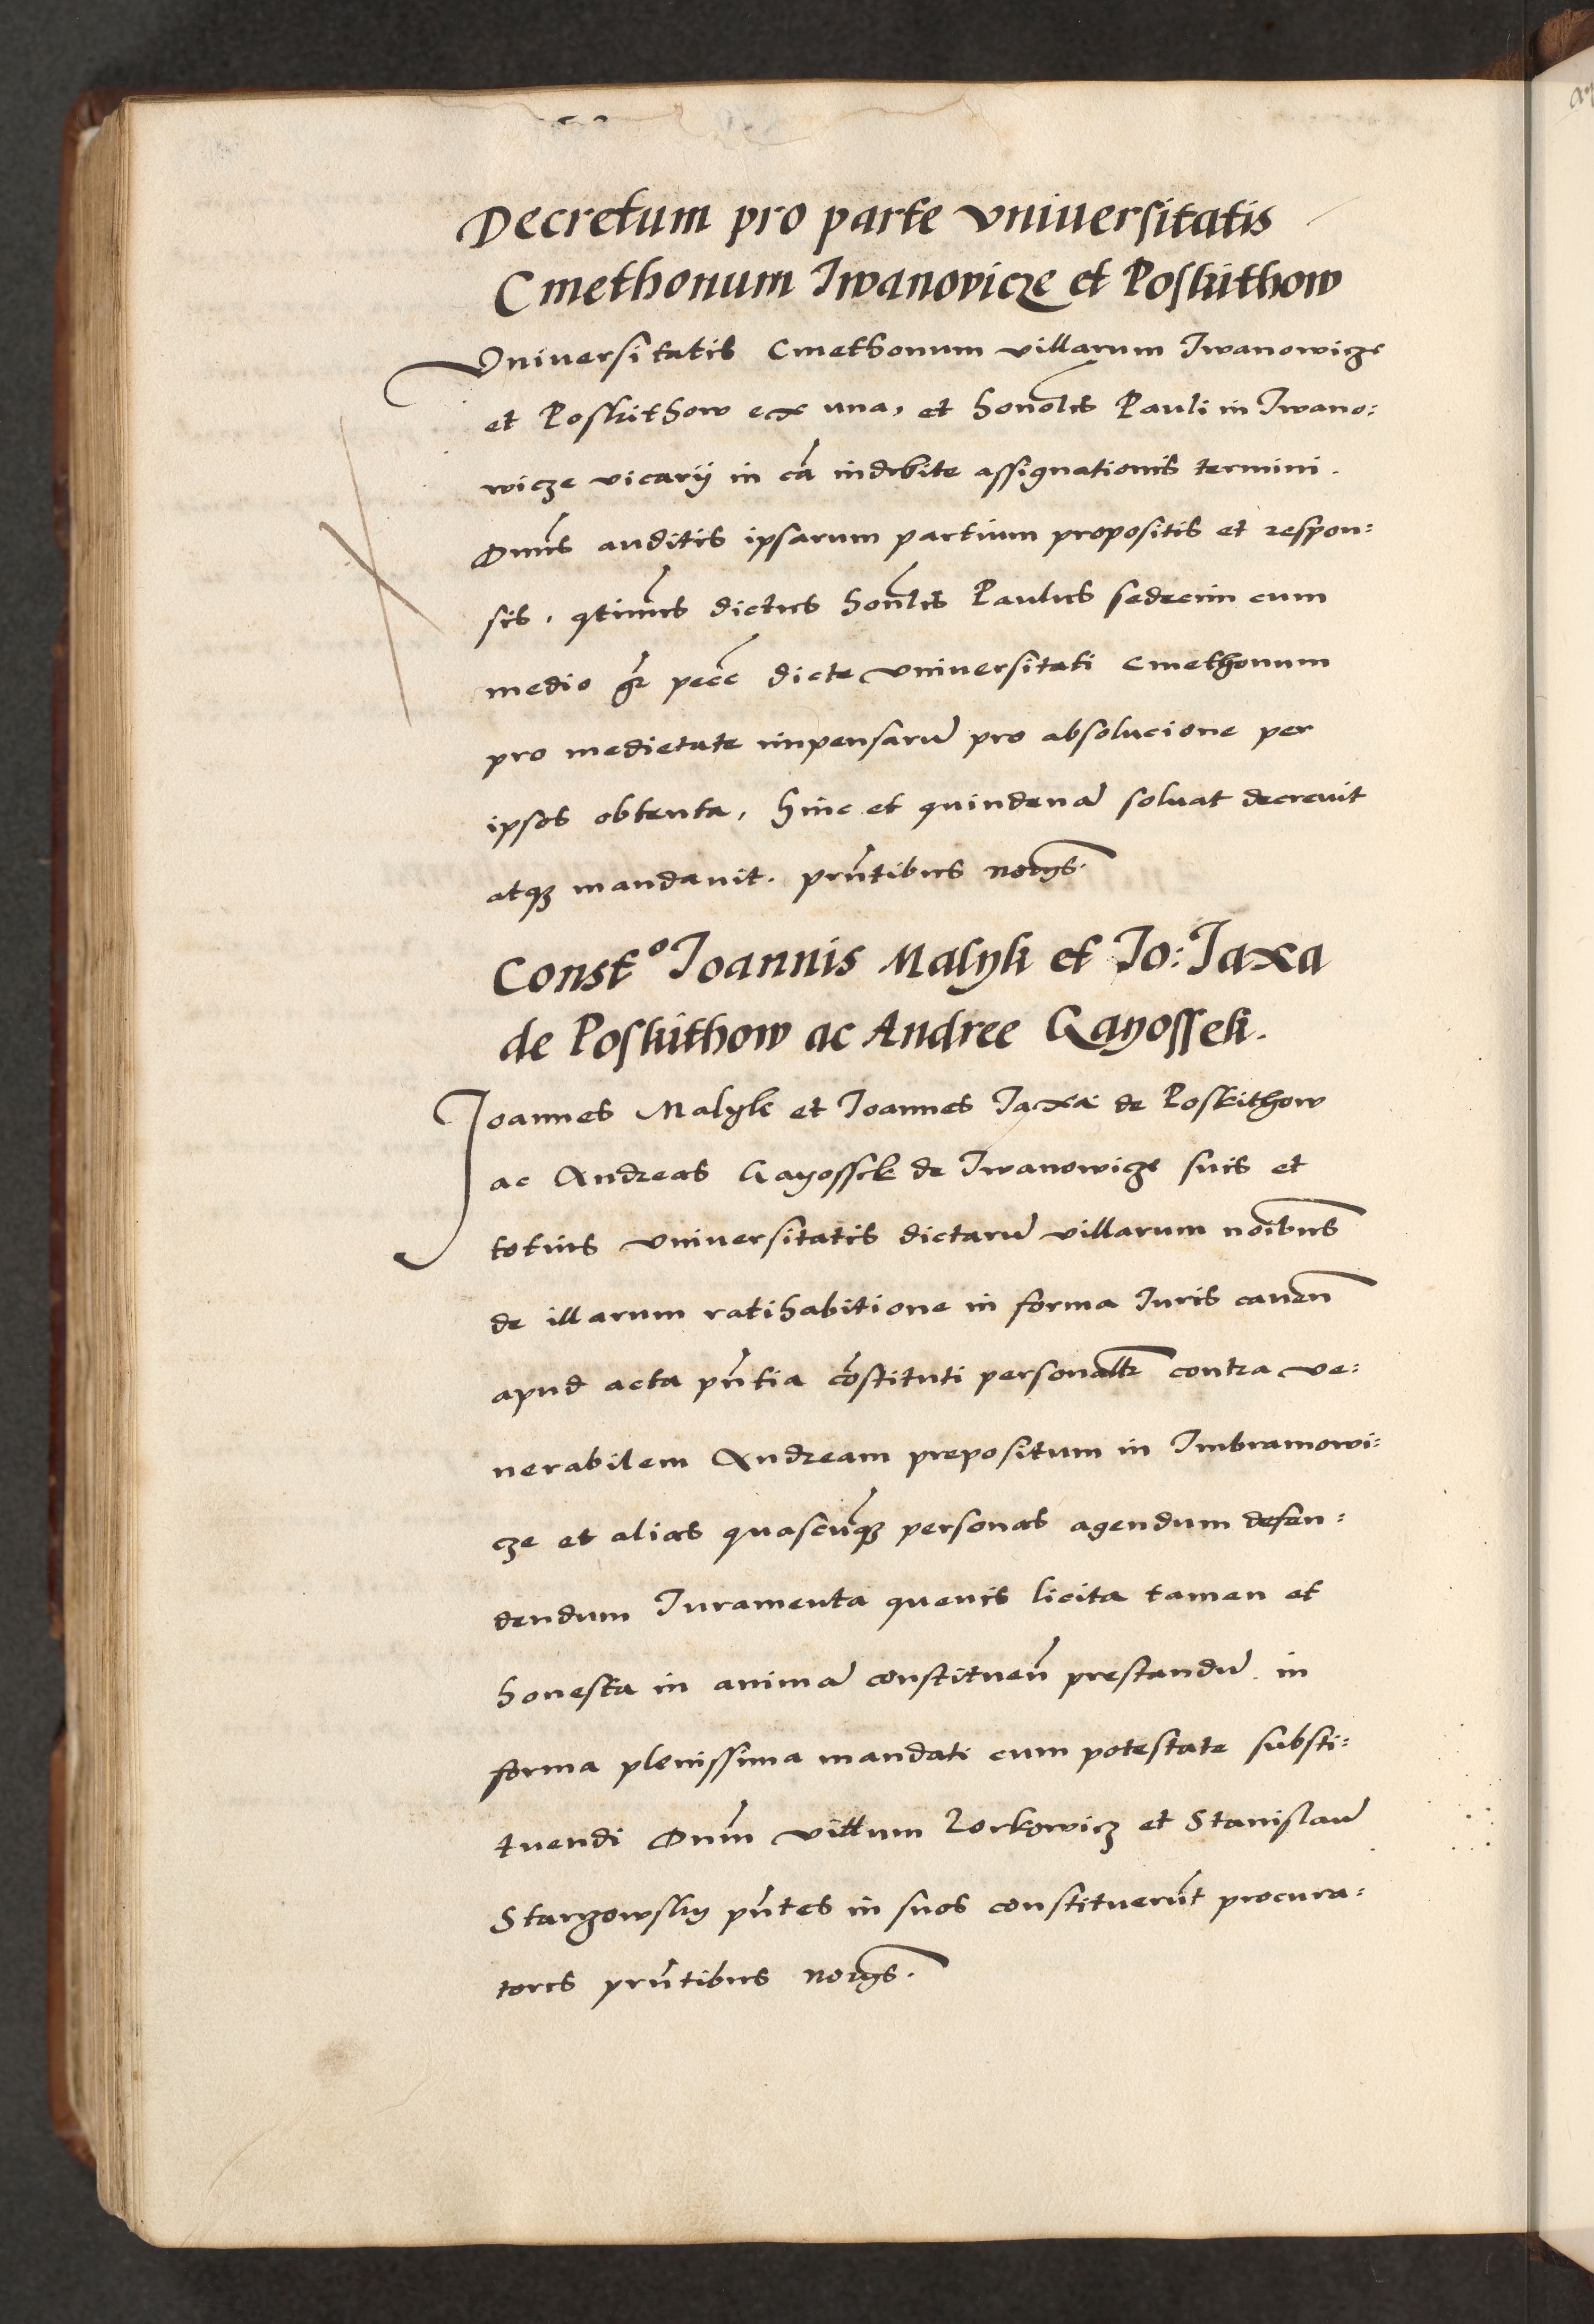 Decretum pro parte vniuersitatis
Cmethonum Iwanovicze et Poskithow
Vniuersitatis Cmethonum villarum Iwanowicze
et Poskithow ex una, et honolis Pauli in Iwano:
wicze vicarij in cã indebite assignationis termini.
Dnus auditis ipsarum partium propositis et respon:
sis, qtinus dictus honlis Paulus sedecim cum
medio gr pecc dicte vniuersitati Cmethonum
pro medietate impensarũ pro absolucione per
ipsos obtenta, hinc et quindenã soluat decreuit
atq₃ mandauit. pñtibus norijs.
Const⁰ Ioannis Malyk et Io: Iaxa
de Poskithow ac Andree Gayossek.
Ioannes Malyk et Ioannes Iaxa de Poskithow
ac Andreas Gayossek de Iwanowicze suis et
totius vniuersitatis dictarũ villarum noibus
de illarum ratihabitione in forma Iuris caueñ
apud acta pñtia cõstituti personaltr contra ve:
nerabilem Andream prepositum in Imbramowi:
cze et alias quascũq₃ personas agendum defen:
dendum Iuramenta queuis licita tamen et
honesta in animã constitueñ prestandũ in
forma plenissima mandati cum potestate substi:
tuendi Dnum vitum Zorkowicz et Stanislaũ
Stargowsky pñtes in suos constituerũt procura:
tores pñtibus norijs.